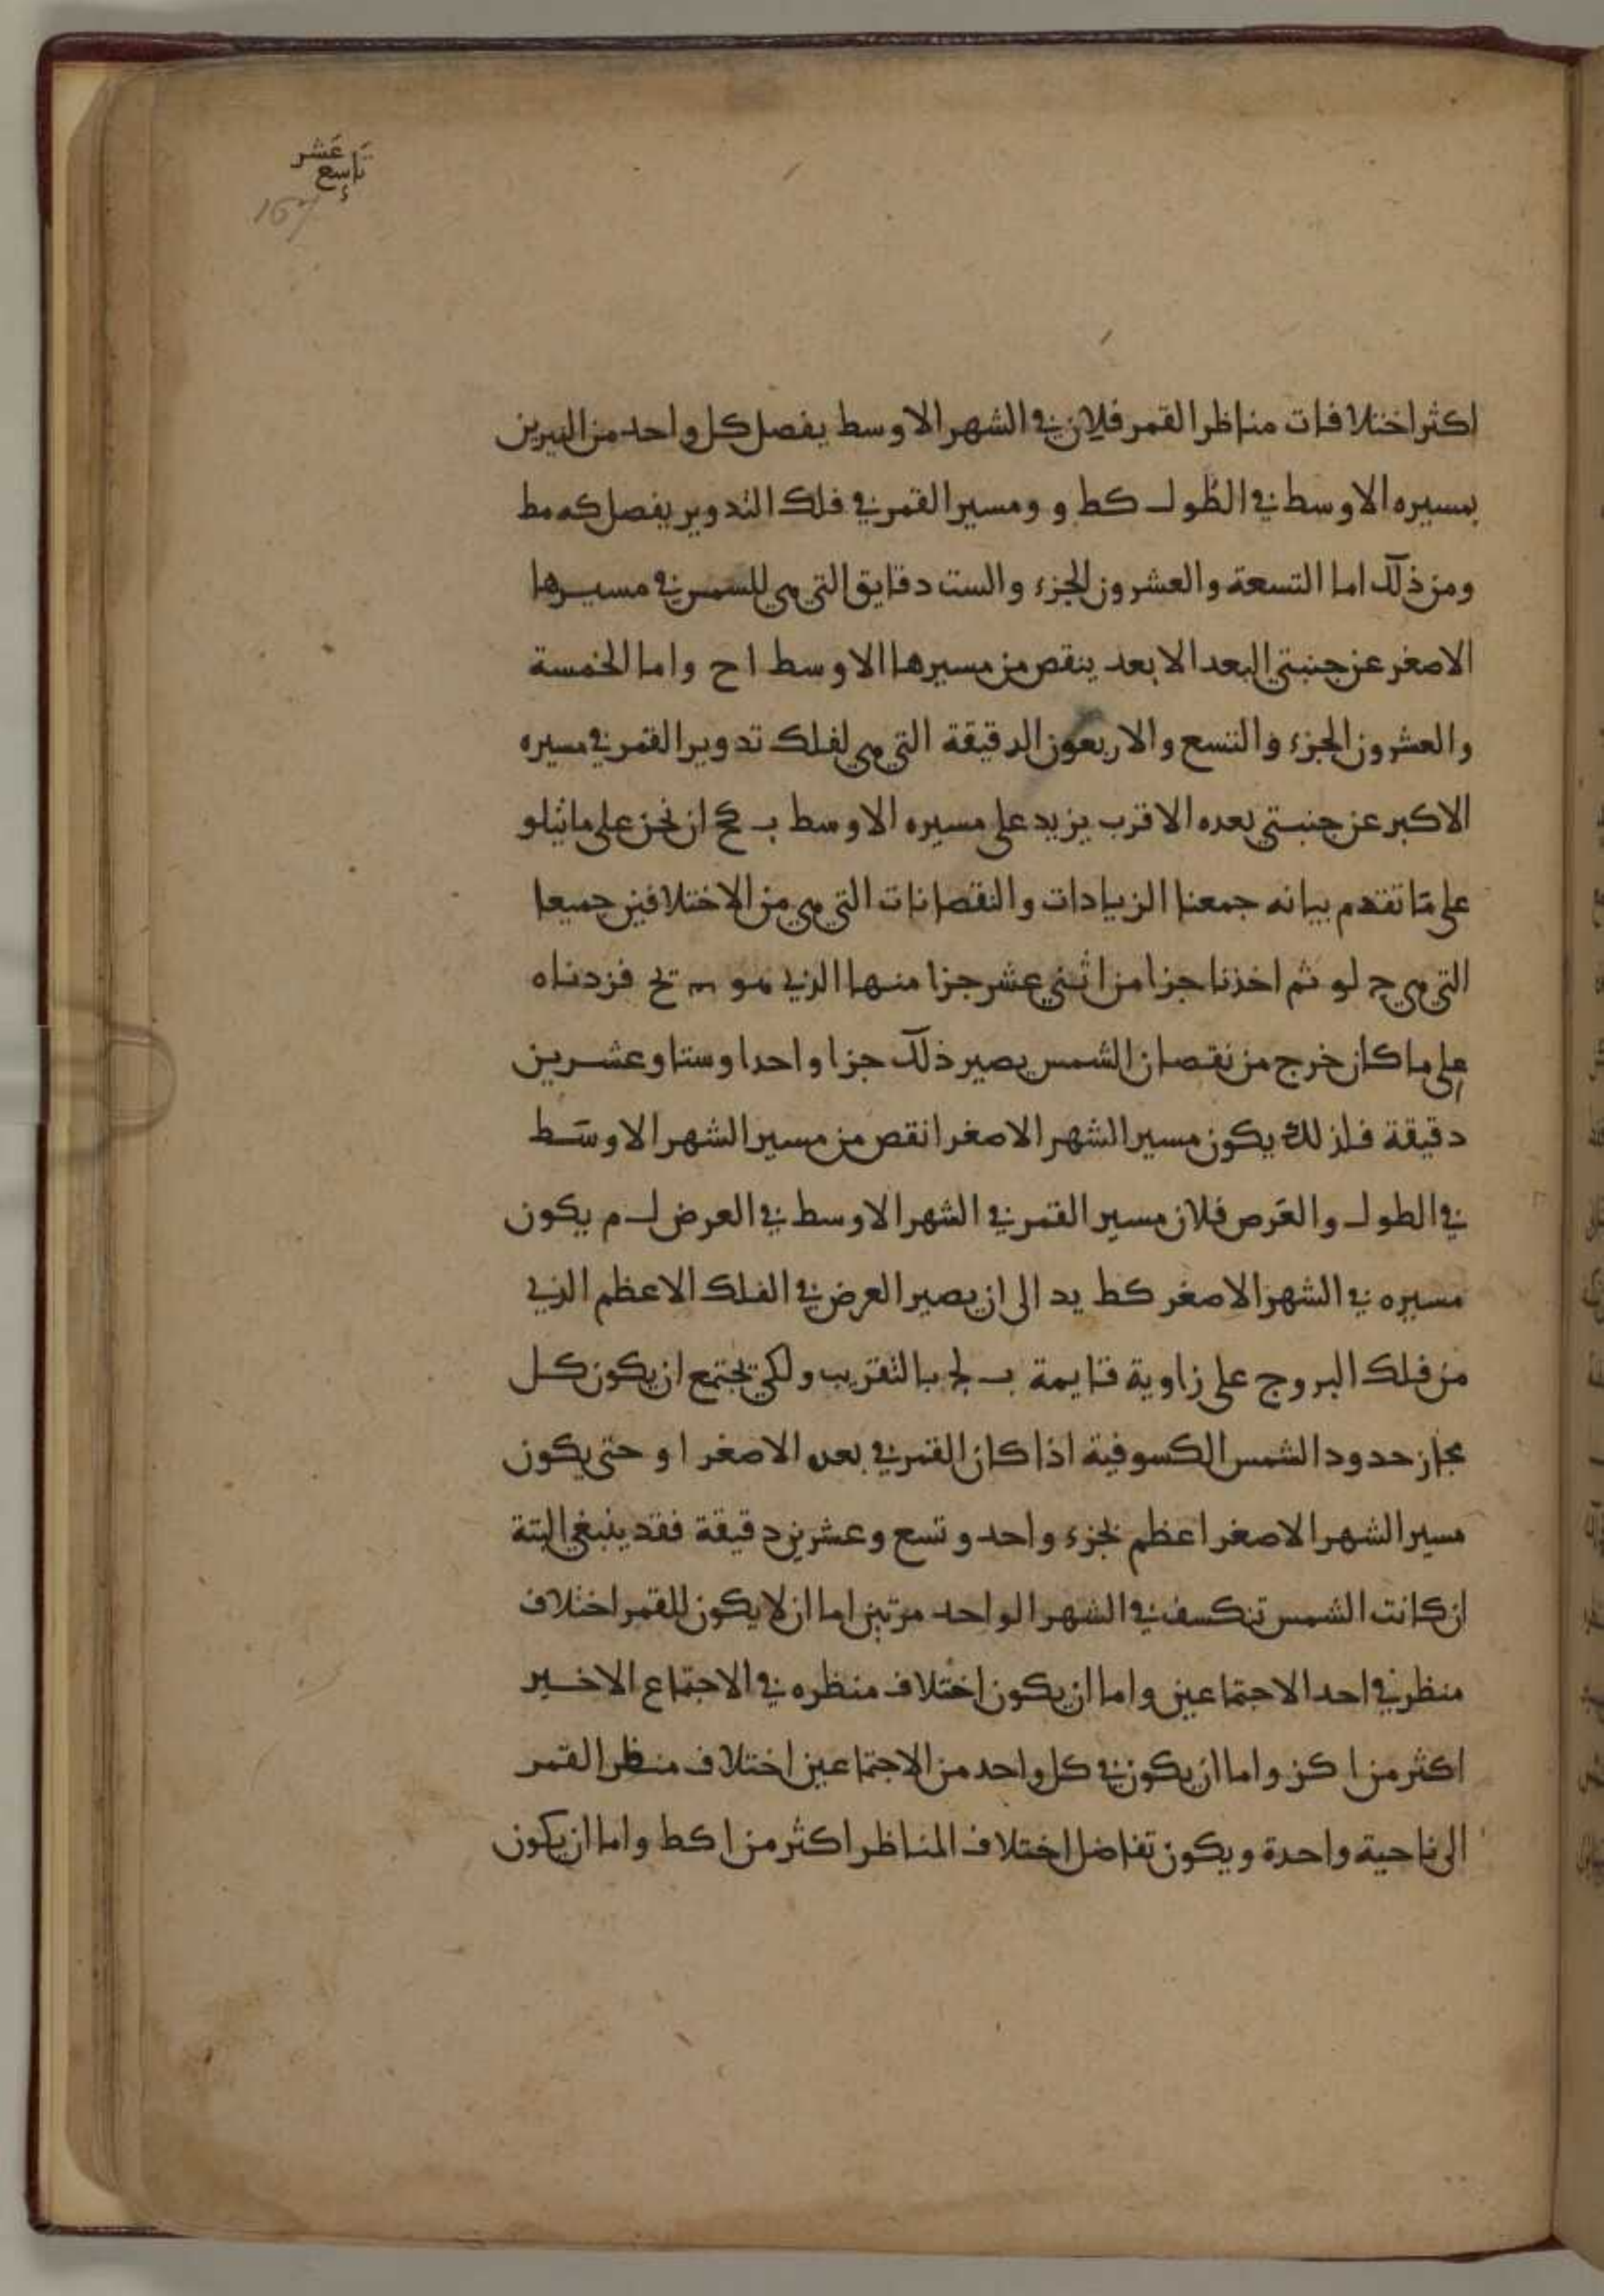 تاسع عشر
167
اكثر اختلافات مناظر القمر فلان في الشهر الاوسط يفصل كل واحد من النيرين
بمسيره الاوسط في الطول كط و ومسير القمر في فلك التدوير يفصل كه مط
ومن ذلك اما التسعة والعشرون الجزء والست دقايق التي هي للشمس في مسيرها
الاصغر عن جنبتي البعد الابعد ينقص من مسيرها الاوسط ا ح واما الخمسة
والعشرون الجزء والتسع والاربعون الدقيقة التي هي لفلك تدوير القمر في مسيره
الاكبر عن جنبتي بعده الاقرب يزيد على مسيره الاوسط ب كح ان نحن على ما يتلو
على ما تقدم بيانه جمعنا الزيادات والنقصانات التي هي من الاختلافين جميعا
التي هي ج لو ثم اخذنا جزا من اثني عشر جزا منها الذي هو يح فزدناه
على ما كان خرج من نقصان الشمس يصير ذلك جزا واحدا وستا وعشرين
دقيقة فلذلك يكون مسير الشهر الاصغر انقص من مسير الشهر الاوسط
في الطول والعرض فلان مسير القمر في الشهر الاوسط في العرض ل م يكون
مسيره في الشهر الاصغر كط يد الى ان يصير العرض في الفلك الاعظم الذي
من فلك البروج على زاوية قايمة ب لج بالتقريب ولكي تجتمع ان يكون كل
مجاز حدود الشمس الكسوفية اذا كان القمر في بعده الاصغر او حتى يكون
مسير الشهر الاصغر اعظم بجزء واحد وتسع وعشرين دقيقة فقد ينبغي البتة
ان كانت الشمس تنكسف في الشهر الواحد مرتين اما ان لا يكون للقمر اختلاف
منظر في احد الاجتماعين واما ان يكون اختلاف منظره في الاجتماع الاخير
اكثر من ا كز واما ان يكون في كل واحد من الاجتماعين اختلاف منظر القمر
الى ناحية واحدة ويكون تفاضل اختلاف المناظر اكثر من ا كط واما ان يكون